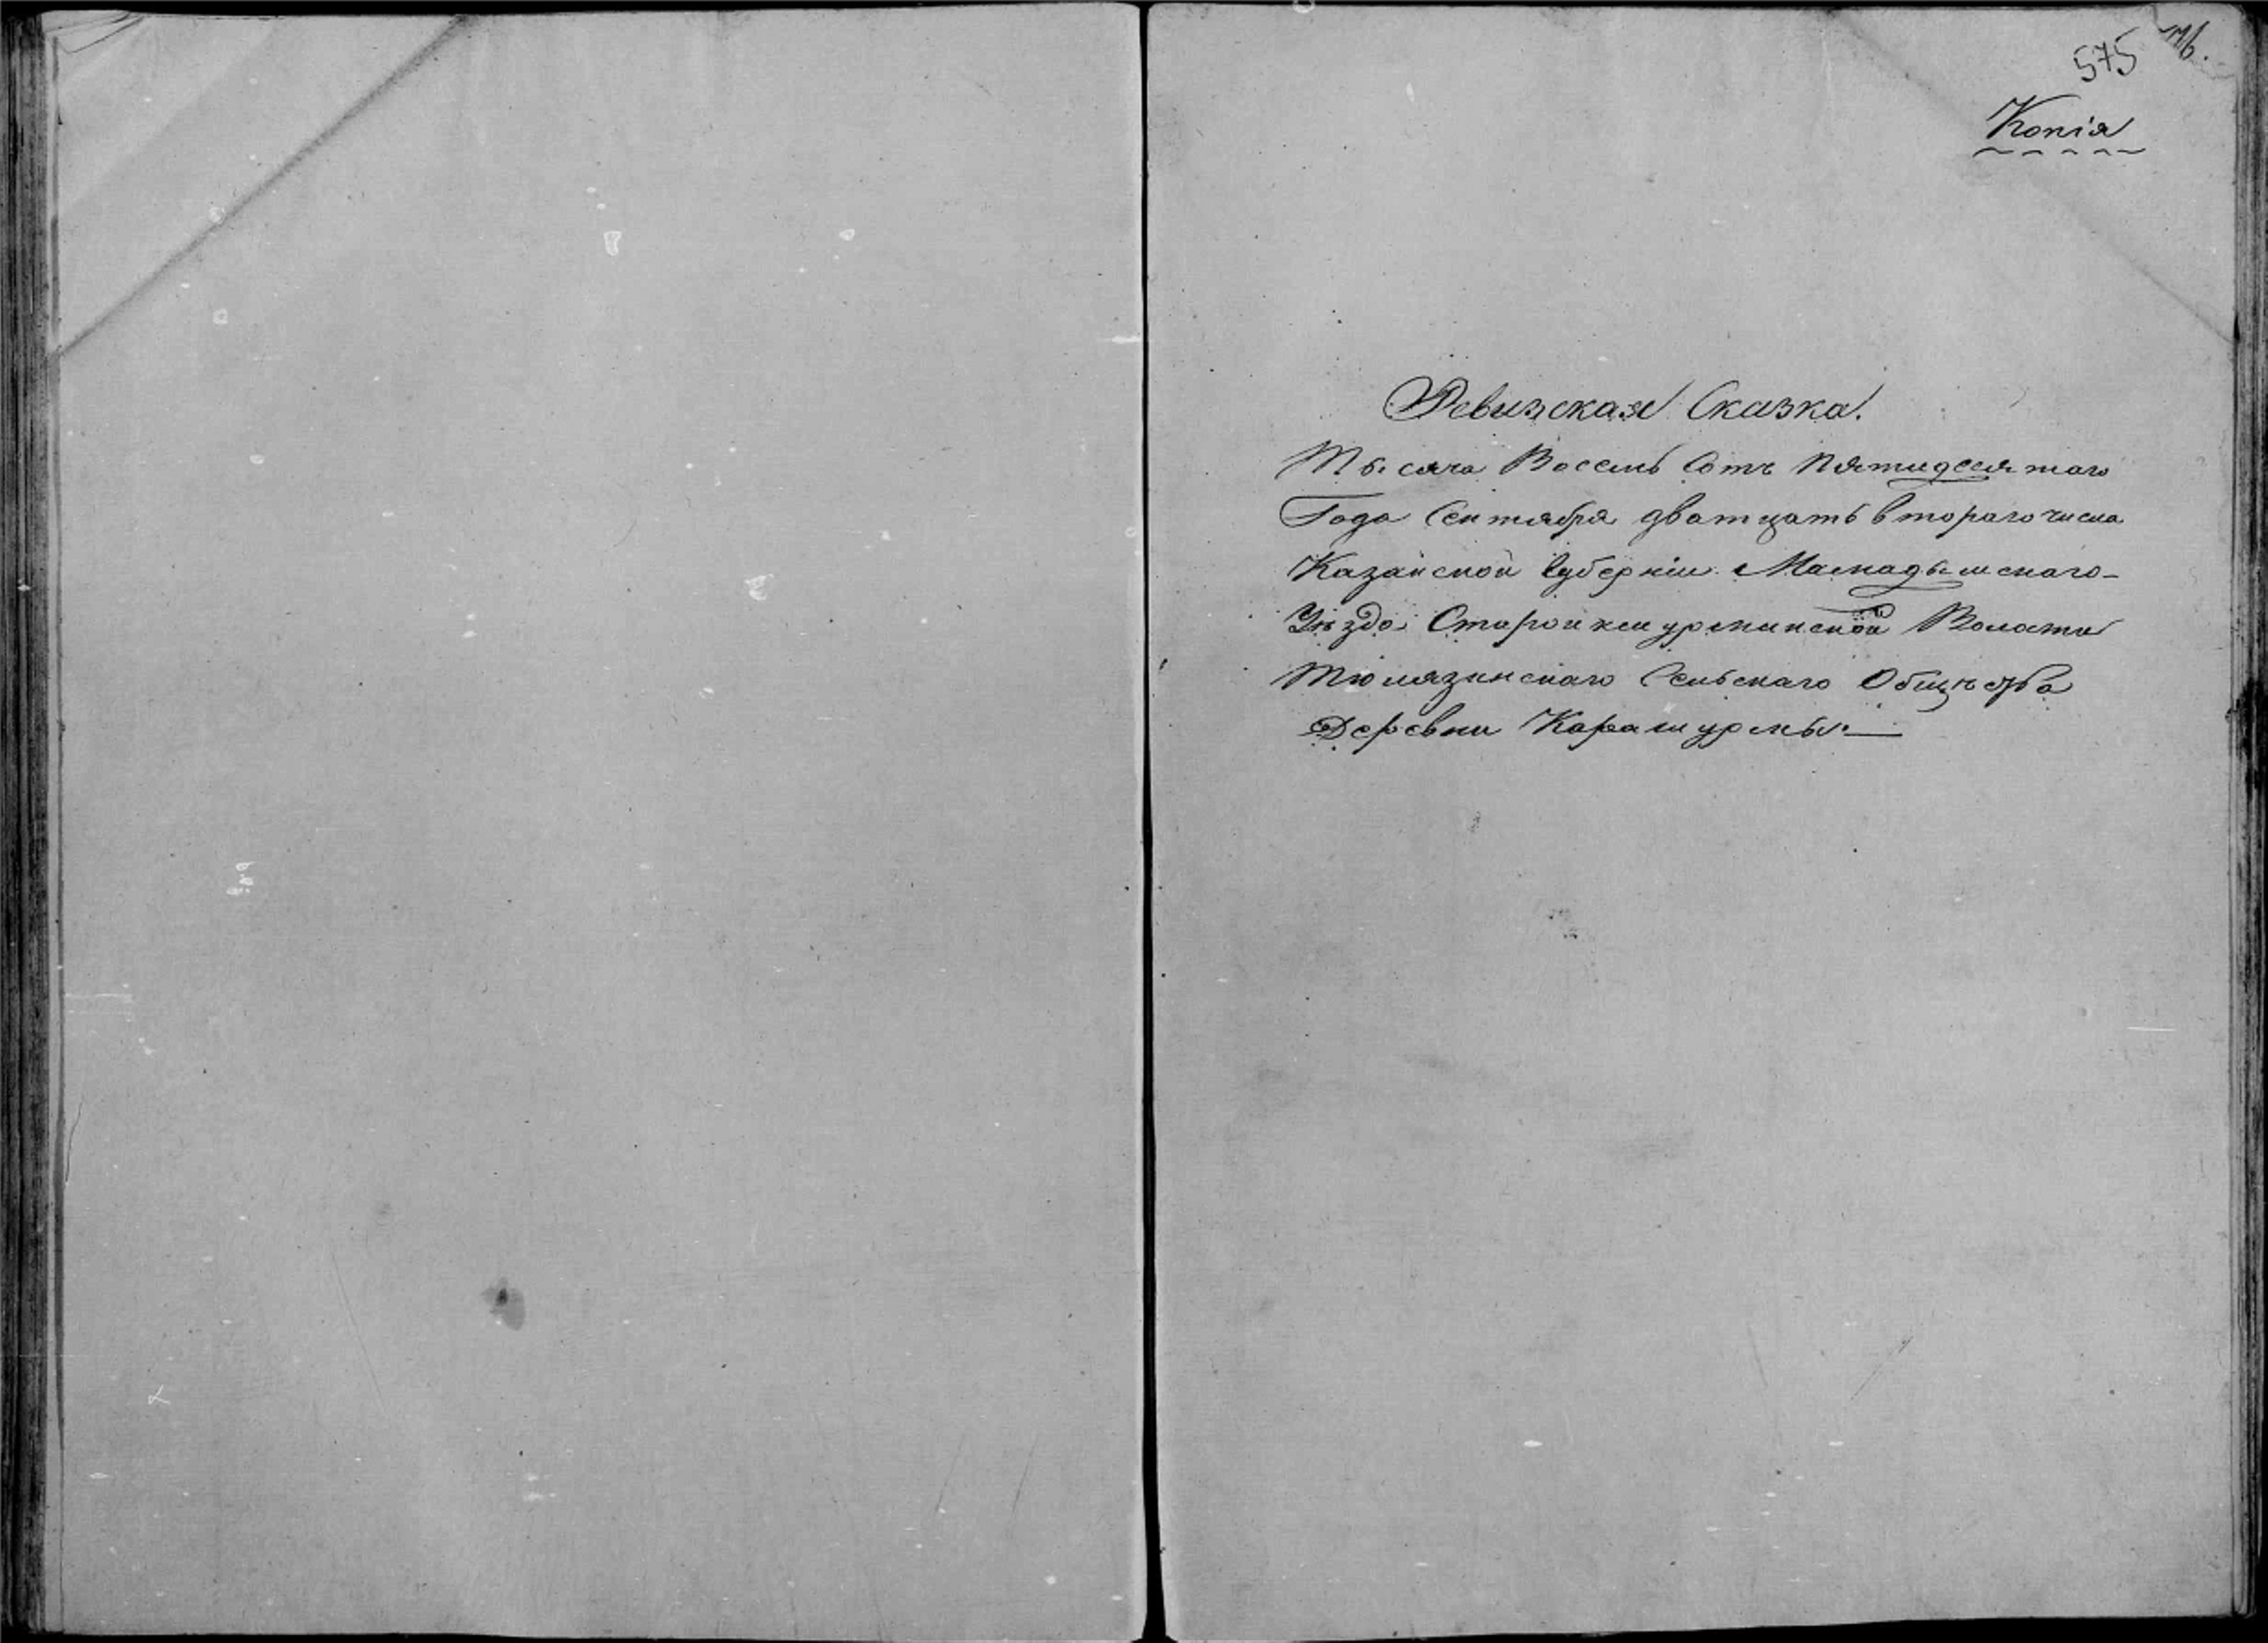 575
Копія
Ревизская Сказка.
Тысяча Восемь Сотъ Пятидесятаго
Года Сентября дватцать втораго числа
Казанской Губерніи Мамадышскаго
Уѣзда Старой кешурминской Волости
Тюлязинскаго Сельскаго Общѣства
Деревни Карашурмы.